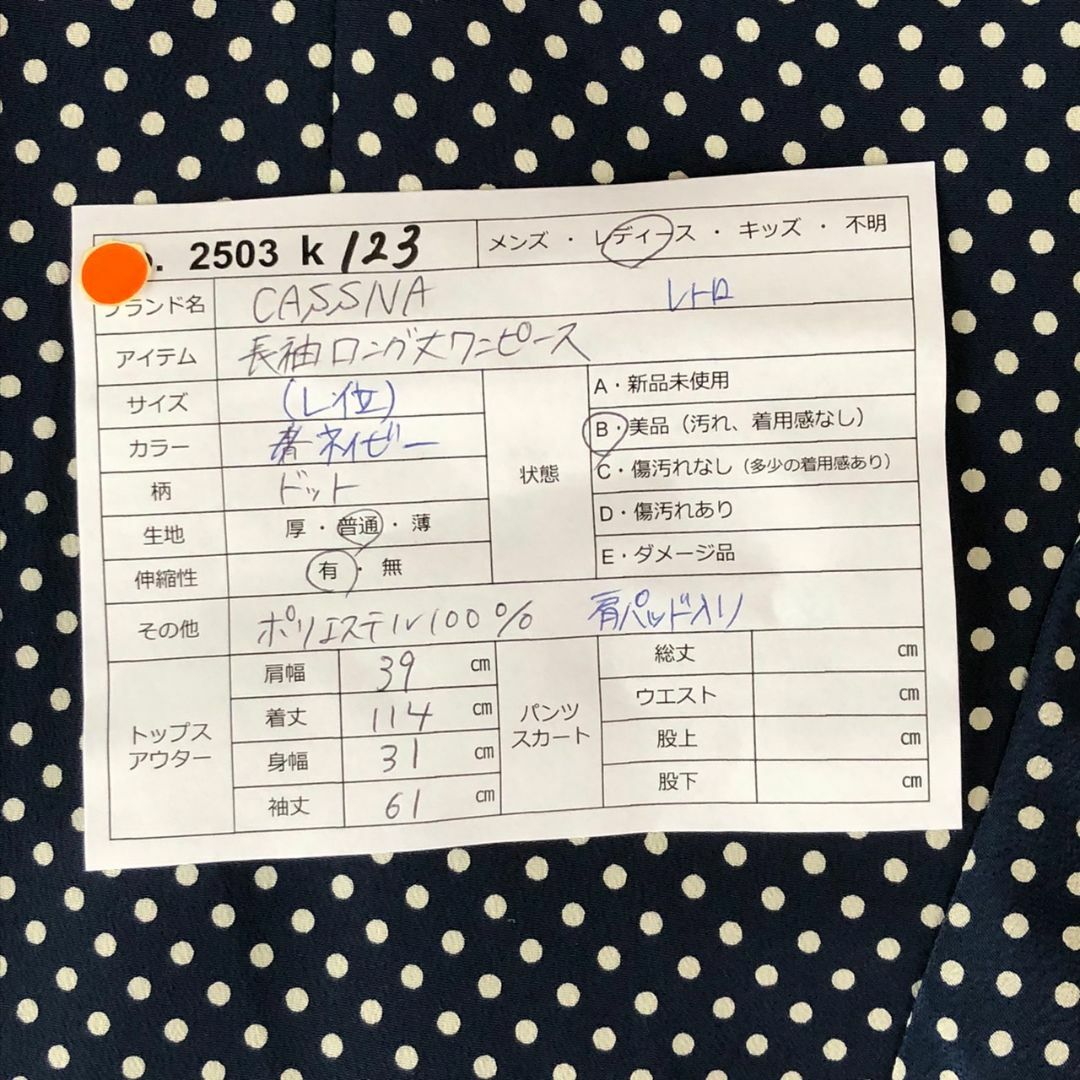 2503 k 123 メンズ ・ レディース ・ キッズ ・ 不明
ブランド名 CASSNA レトロ
アイテム 長袖ロング丈ワンピース
サイズ (L位)
カラー 青 ネイビー
柄 ドット
生地 厚 ・ 普通 ・ 薄
伸縮性 有 ・ 無
状態
A・新品未使用
B・美品（汚れ、着用感なし）
C・傷汚れなし（多少の着用感あり）
D・傷汚れあり
E・ダメージ品
その他 ポリエステル100% 肩パッド入り
トップス
アウター
肩幅 39 cm
着丈 114 cm
身幅 31 cm
袖丈 61 cm
パンツ
スカート
総丈 cm
ウエスト cm
股上 cm
股下 cm